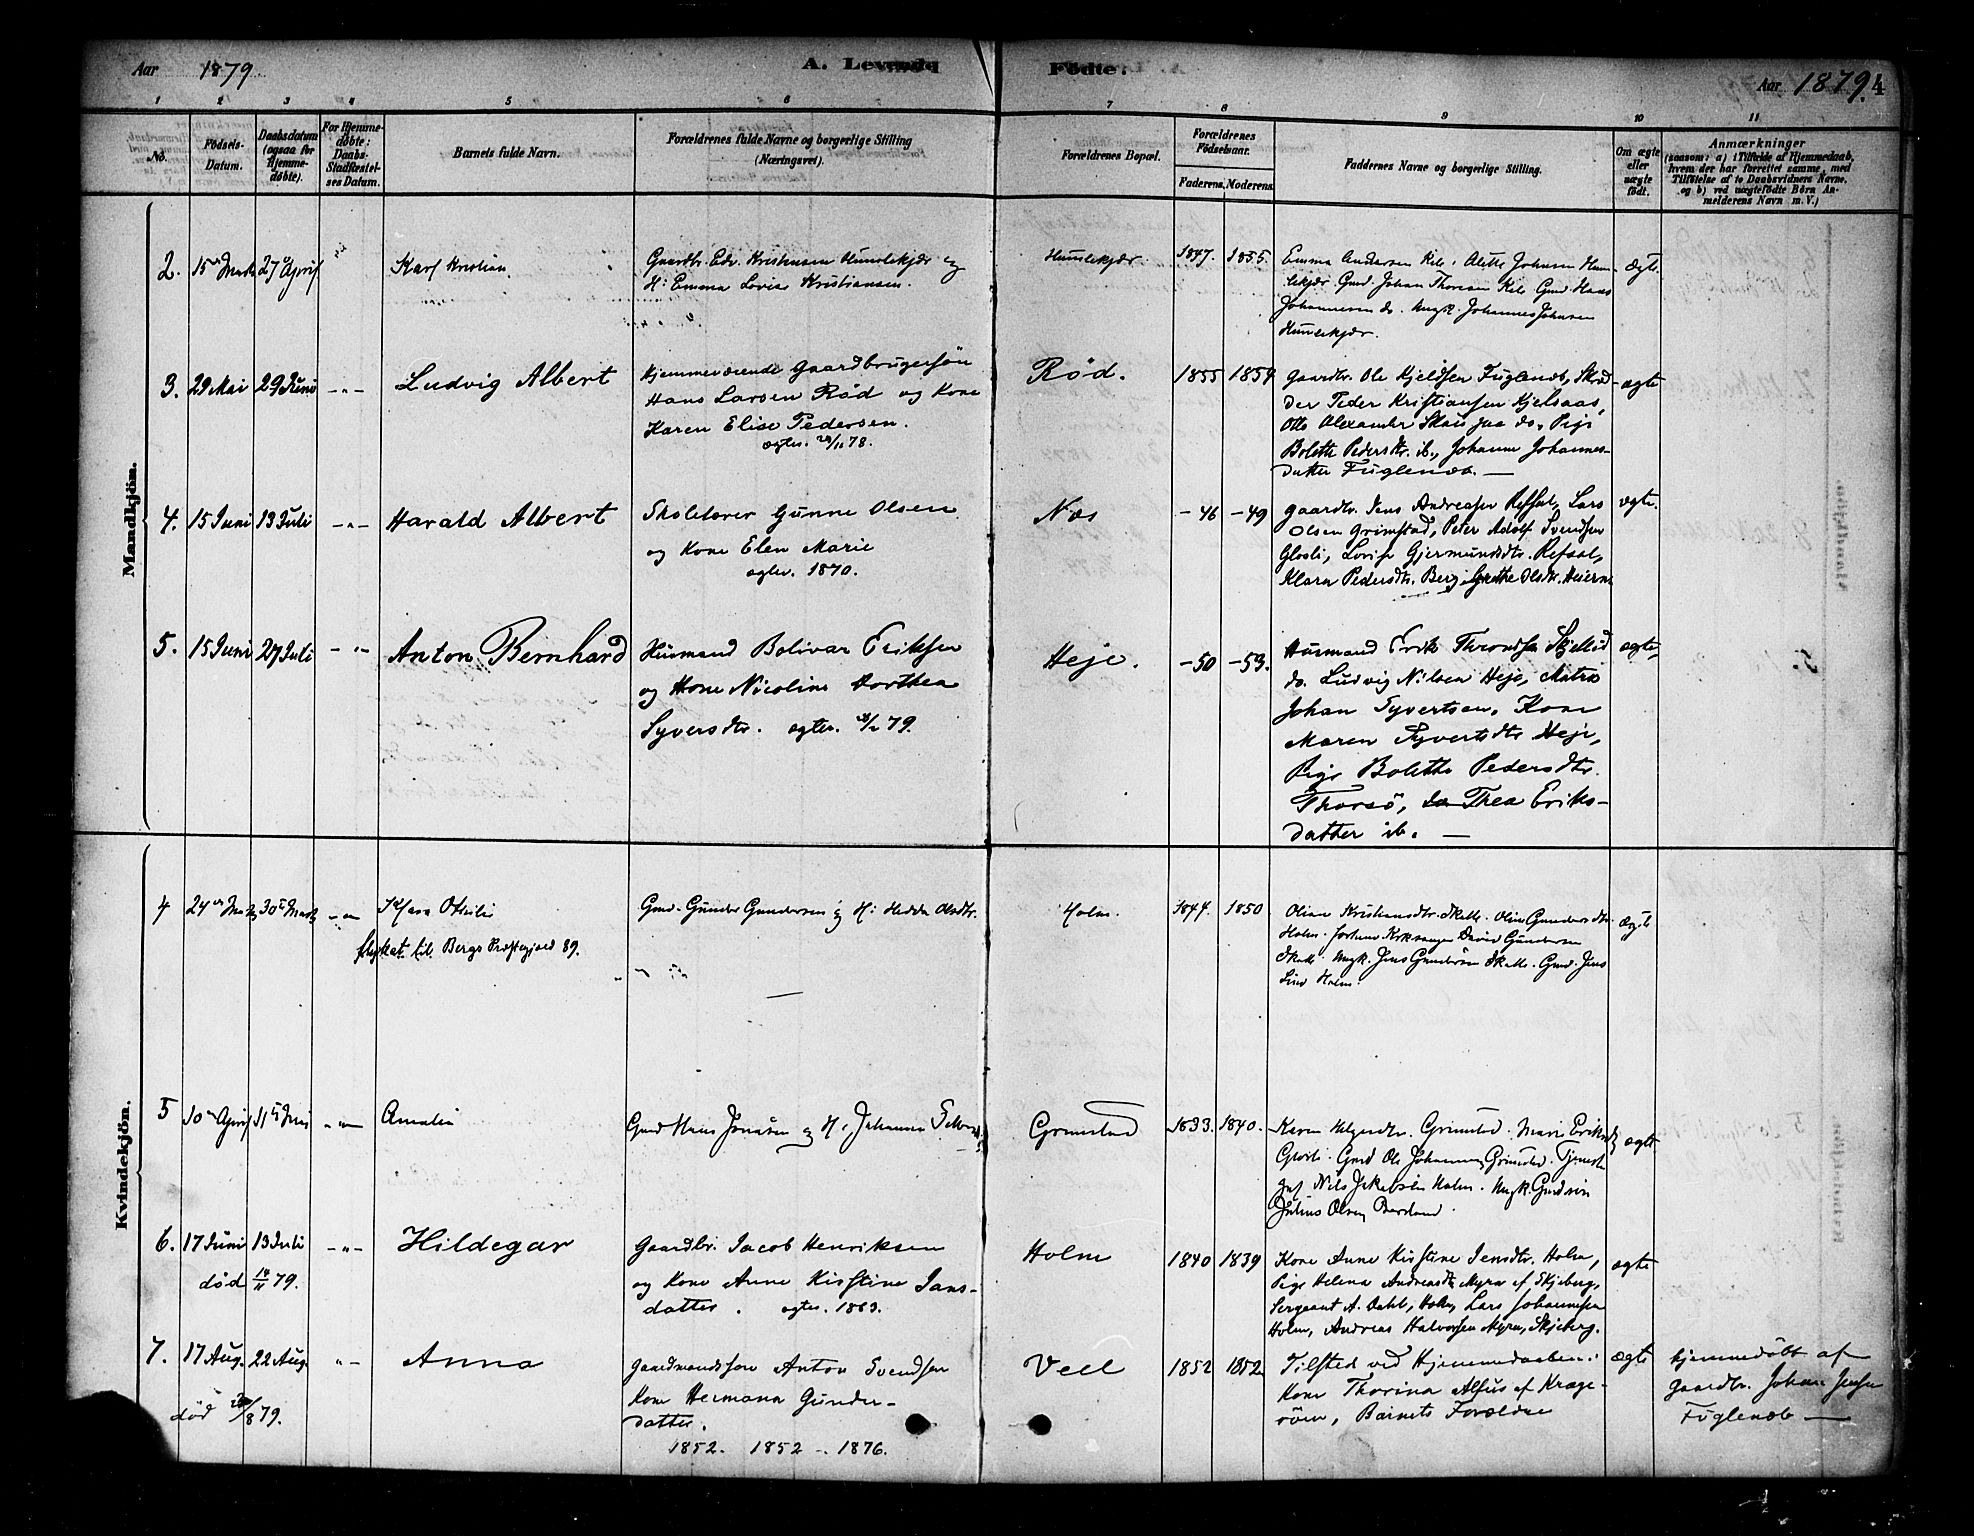 Aar 1879
A. Levende
Födte.
Aar 1879. 4
1 2 3 4 5 6 7 8 9 10 11
No.
Födsels-
Datum.
Daabsdatum
(ogsaa for
Hjemme-
døbte).
For Hjemme-
døbte:
Daabs-
Stadfæstel-
ses Datum.
Barnets fulde Navn.
Forældrenes fulde Navne og borgerlige Stilling
(Næringsvei).
Forældrenes Bopæl.
Forældrenes
Födselsaar.
Faderens. Moderens.
Faddernes Navne og borgerlige Stilling.
Om ægte
eller
uægte
födt.
Anmærkninger
(saasom: a) i Tilfælde af Hjemmedaab,
hvem der har forrettet samme, med
Tilföielse af to Daabsvidners Navne,
og b) ved uægtefödte Börn An-
melderens Navn m. V.)
Mandkjön.
2. 15de Marts 27 April
Karl Kristian
Gaardbr. Edv. Kristiansen Humlekjær og
H: Emma Lovise Kristiansen.
Humlekjær. 1847. 1855.
Emma Andersen Kile. Alette Johnsen Hum-
lekjær. Gmd. Johan Thoresen Kile. Gmd. Hans
Johannesen do. Ungk. Johannes Johnsen
Humlekjær.
Ægte.
3. 29 Mai 29 Juni -"-
Ludvig Albert
Hjemmeværende Gaardbrugersön
Hans Larsen Röd og Kone
Karen Elise Pedersen.
ægtev. 29/11 78.
Röd. 1855 1859
Gaardbr. Ole Kjeldsen Fuglenæb, Skræd-
der Peder Kristiansen Kjelsaas,
Otto Alexander do. Pige
Bolette Pedersdtr. ib., Johanne Johannes-
datter Fuglenæb. —
ægte
4. 15 Juni 13 Juli -"-
Harald Albert
Skolelærer Gunne Olsen
og Kone Elen Marie
ægtev. 1870.
Næs -46 -49
Gaardbr. Jens Andreasen Refsal, Lars
Olsen Grimstad, Peter Adolf Svendsen
Glosli, Lovise Gjermundsdtr. Refsal,
Klara Pedersdtr. Berg, Grethe Olsdtr. Heierne
ægte.
5. 15 Juni 27 Juli -"-
Anton Bernhard
Husmand Bolivar Eriksen
og Kone Nicoline Dorthea
Syversdtr. ægtev. 79.
Heje. -50 -53.
Husmand Erik Throndsen
do. Ludvig Nilsen Heje, Matros
Johan Syvertsen, Kone
Maren Syvertsdtr Heje,
Pige Bolette Pedersdtr.
Thorsö, do Thea Eriks-
datter ib. —
ægte,
Kvindekjön.
4 24de Marts 30te Marts -"-
Klara Otilie
flyttet til Bergs Præstegjæld 89.
Gmd. Gunder Gundersen og H: Hedda Olsdtr.
Holm. 1847. 1850
Oline Kristiansdtr. Skelle. Oline Gundersdtr
Holm. David Gundersen
Skelle. Ungk. Jens Gundersen Skelle. Gmd. Jens
Holm.
Ægte
5 10de April 11te Juni -"-
Amalia
Gmd Hans Jonasen og H: Johanne
Grimstad 1833. 1840.
Karen Helgesdtr. Grimsted. Marie Eriksdtr
Glosli. Gmd Ole Johannesen Grimsted. Tjeneste-
Nils Jakobsen Holm. Ungk. Gmdsön
Julius Olsen
ægte
6. 17 Juni 13 Juli -"-
død 14/11 79.
Hildegar
Gaardbr. Jacob Henriksen
og Kone Anne Kistine Jans-
datter. ægtev. 1863.
Holm 1840 1839
Kone Anne Kistine Jensdtr. Holm,
Pige Helena Andreasdtr Myra af Skjeberg,
Sergeant A. Dahl, Holm, Lars Johannesen
Holm, Andreas Halvorsen Myra, Skjeberg.
ægte
7. 17 Aug. 22 Aug. "-
død 23/8 79.
Anna
Gaardmandssön Anton Svendsen
Kone Hermana Gunder-
datter.
1852. 1852 -. 1876.
Vell 1852 1852
Tilsted ved Hjemmedaaben:
Kone Thorina Alfus af Krage-
röen, Barnets Forældre
ægte
Hjemmedöbt af
Gaardbr. Johan Jensen
Fuglenæb —